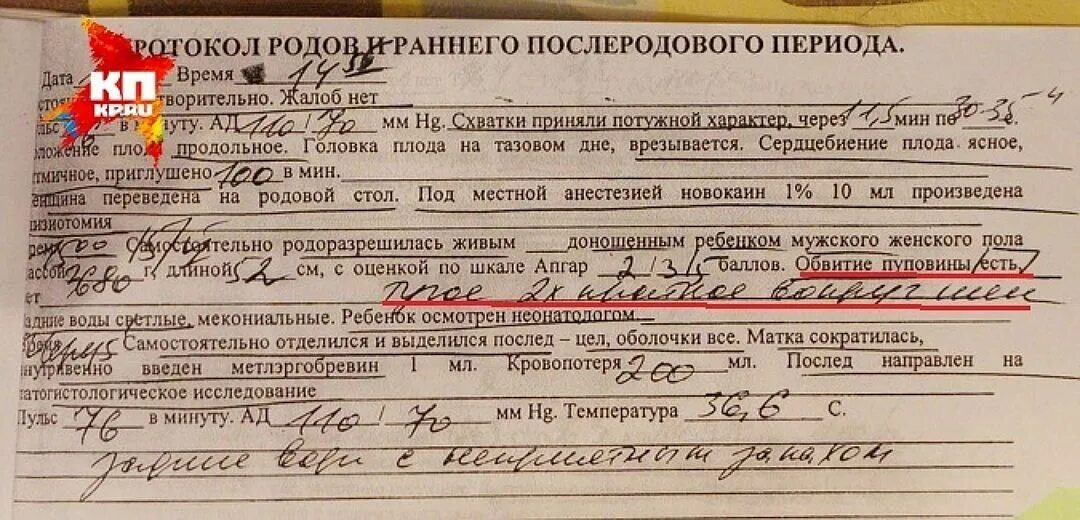 РОТОКОЛ РОДОВ И РАННЕГО ПОСЛЕРОДОВОГО ПЕРИОДА.
КП
KP.RU
Дата Время 14 50
творительно. Жалоб нет
76 в минуту. АД 110 / 70 мм Hg. Схватки приняли потужной характер, через 1,5 мин по 30-35 с.
оложение плода продольное. Головка плода на тазовом дне, врезывается. Сердцебиение плода ясное,
тмичное, приглушено 100 в мин.
енщина переведена на родовой стол. Под местной анестезией новокаин 1% 10 мл произведена
изиотомия
Самостоятельно родоразрешилась живым доношенным ребенком мужского женского пола
ассой 3680 г, длиной 52 см, с оценкой по шкале Апгар 2/3/5 баллов. Обвитие пуповины/есть,/
ет тугое 2х кратное вокруг шеи
адние воды светлые, мекониальные. Ребенок осмотрен неонатологом
Самостоятельно отделился и выделился послед – цел, оболочки все. Матка сократилась,
нутривенно введен метлэргобревин 1 мл. Кровопотеря 200 мл. Послед направлен на
атогистологическое исследование
Пульс 76 в минуту. АД 110 / 70 мм Hg. Температура 36,6 С.
задние воды с неприятным запахом